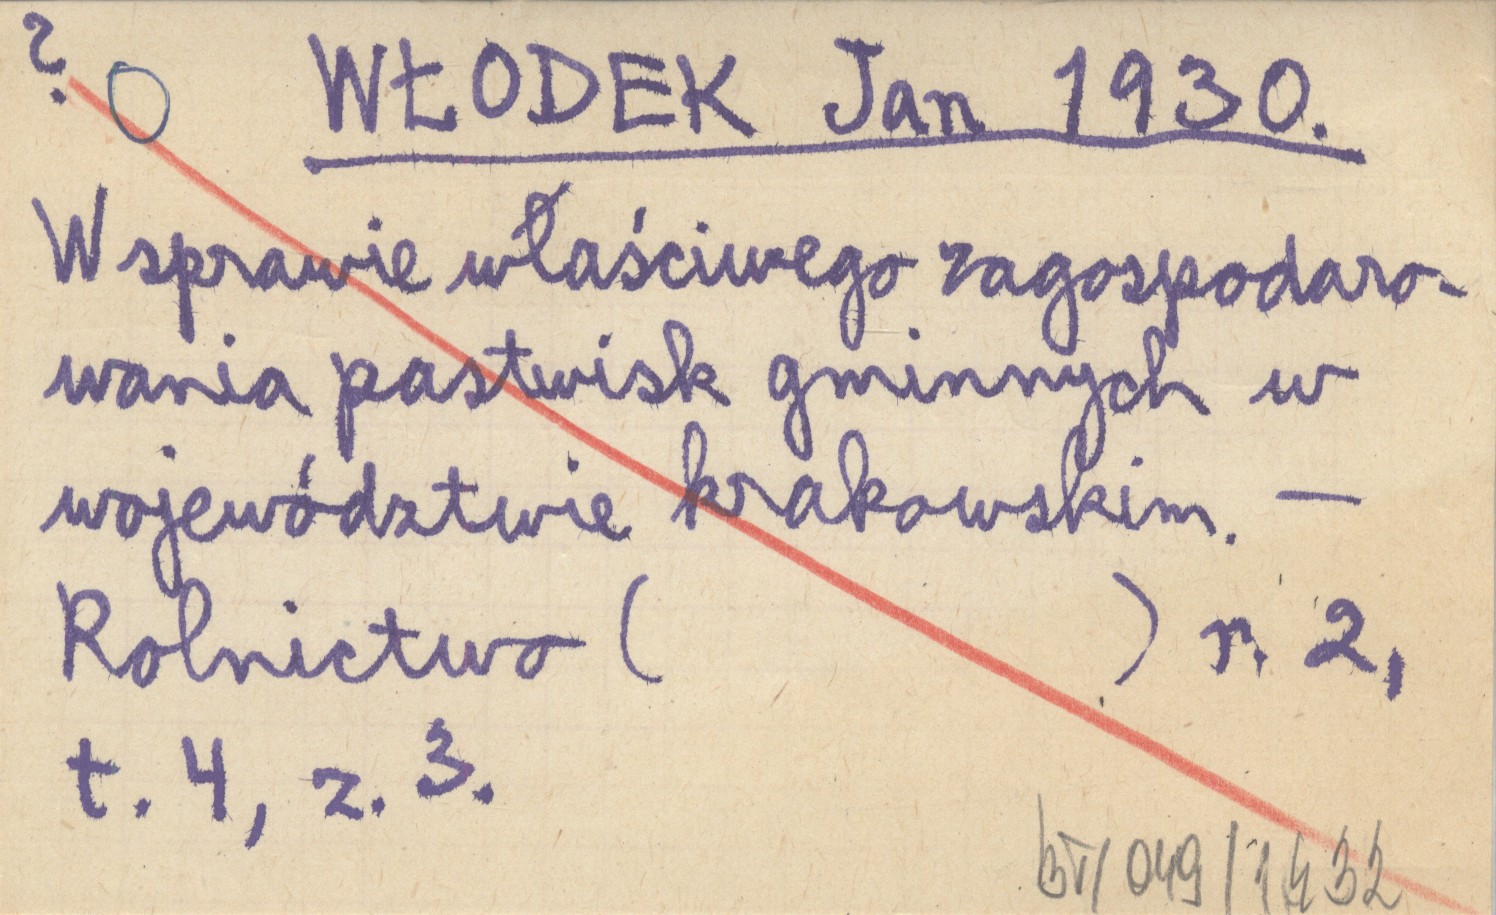 ?
WŁODEK Jan 1930.
W sprawie właściwego zagospodaro-
wania pastwisk gminnych w
województwie krakowskim. —
Rolnictwo ( ) r. 2,
t. 4, z. 3.
BT/049/1432